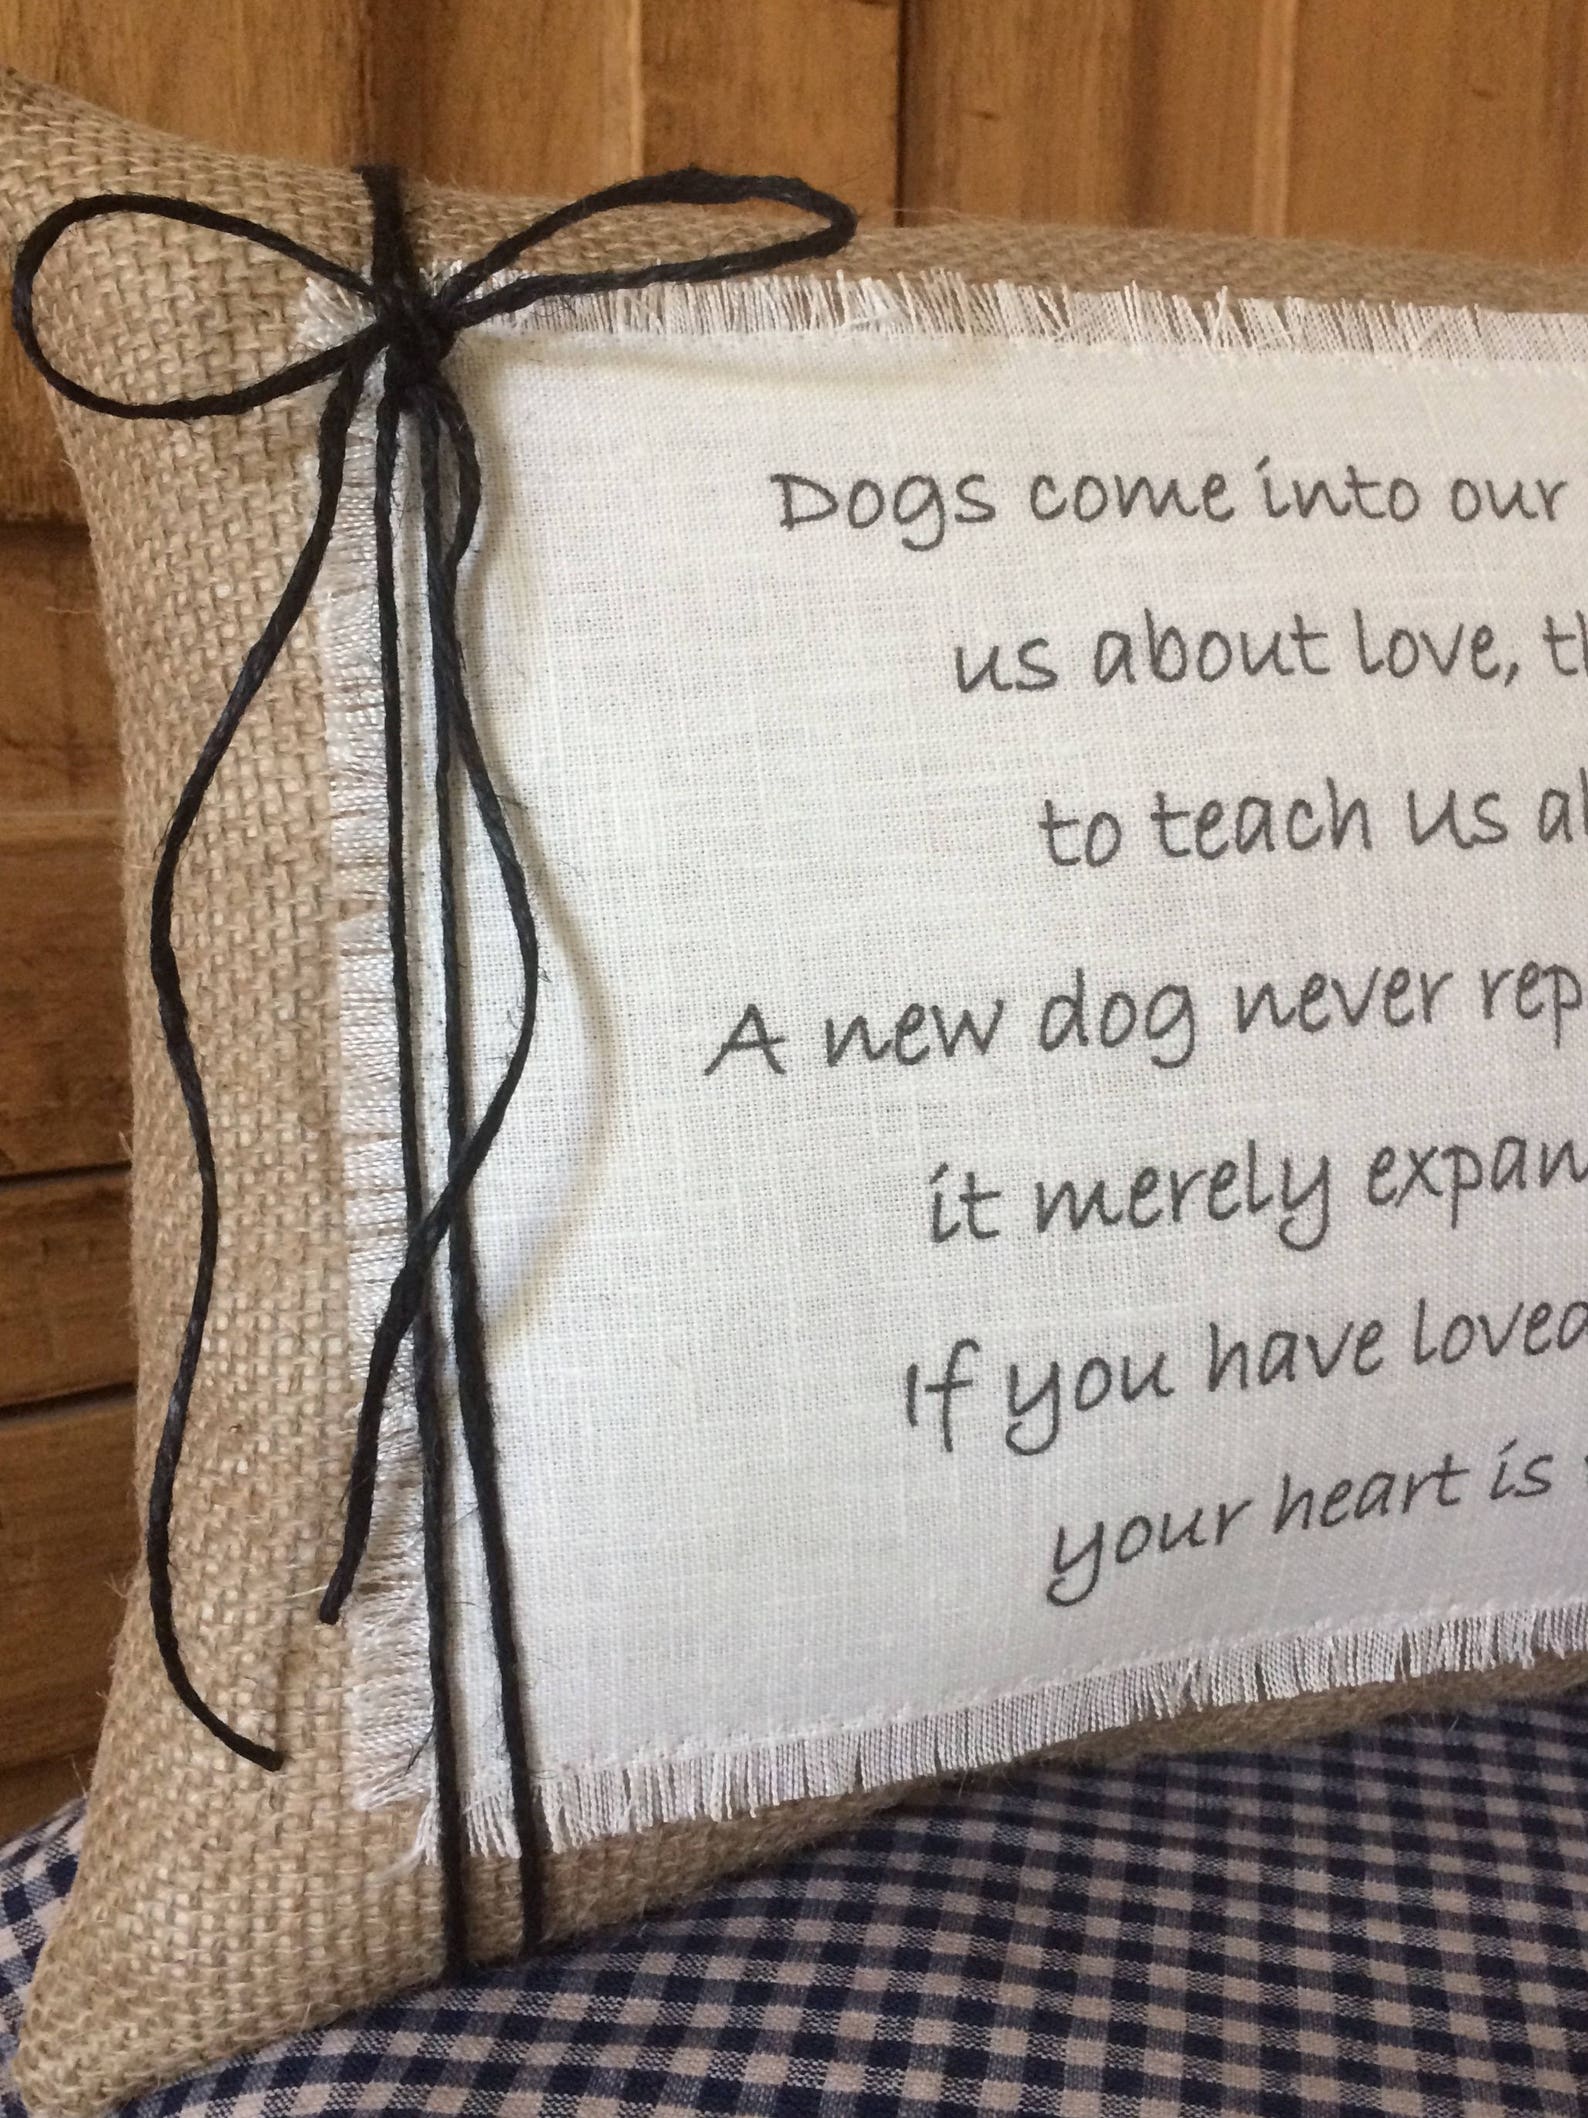 Dogs come into our
us about love,
to teach us
A new dog never
it merely
If you have
your heart is